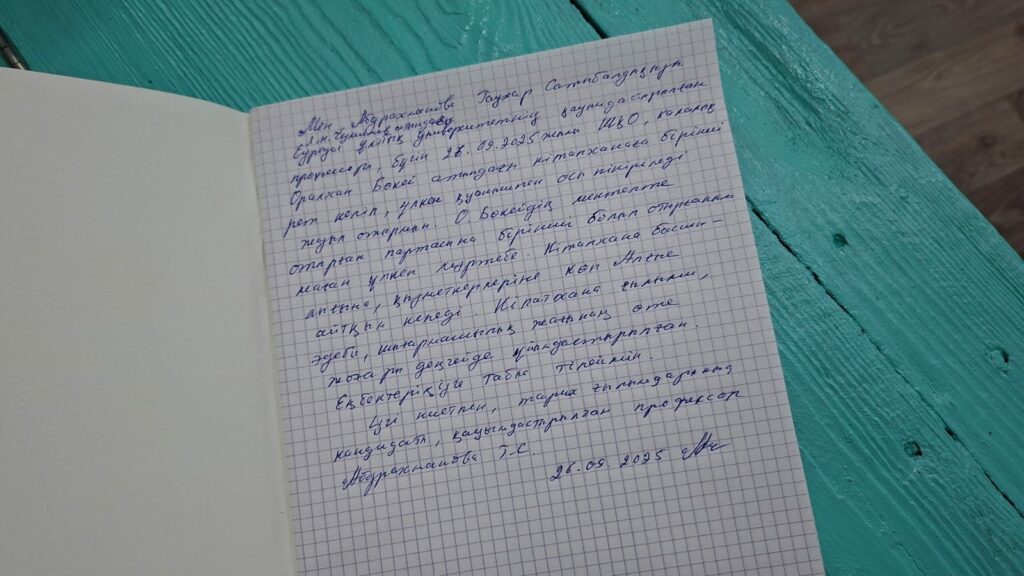 Мен Абдрахманова Гаухар Сатыбалдықызы
Л.Н. Гумилев атындағы
Еуразия ұлттық университетінің қауымдастырылған
профессоры, бүгін 26.09.2025 жылы ШҚО,
Оралхан Бөкей атындағы кітапханаға бірінші
рет келіп, үлкен қуанышпен осы пікірімді
жазып отырмын. О.Бөкейдің мектепте
отырған партасына бірінші болып отырғаным
маған үлкен мәртебе. Кітапхана басшы-
лығына, қызметкерлеріне көп Алғыс
айтқым келеді. Кітапхана ғылыми,
әдеби, шығармашылық жағынан өте
жоғары деңгейде ұйымдастырылған.
Еңбектеріңізге табыс тілеймін.
Ізгі ниетпен, тарих ғылымдарының
кандидаты, қауымдастырылған профессор
Абдрахманова Г.С.
26.09 2025